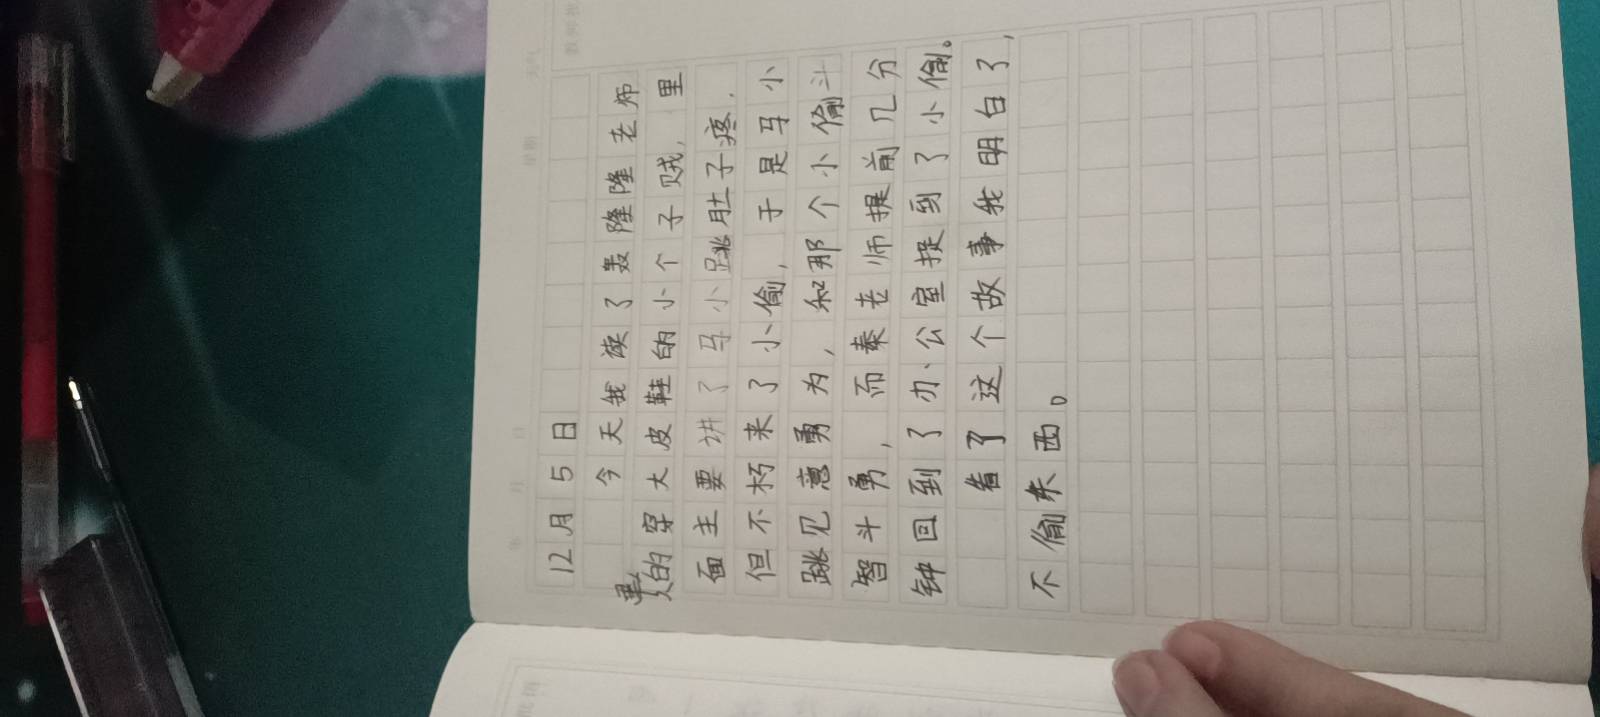 12月5日
今天我读了轰隆隆老师
的穿大皮鞋的小个子贼，里
面主要讲了马小跳肚子疼，
但不朽来了小偷，于是马小
跳见意勇为，和那个小偷斗
智斗勇，而秦老师提前几分
钟回到了办公室捉到了小偷。
看了这个故事我明白了，
不偷东西。